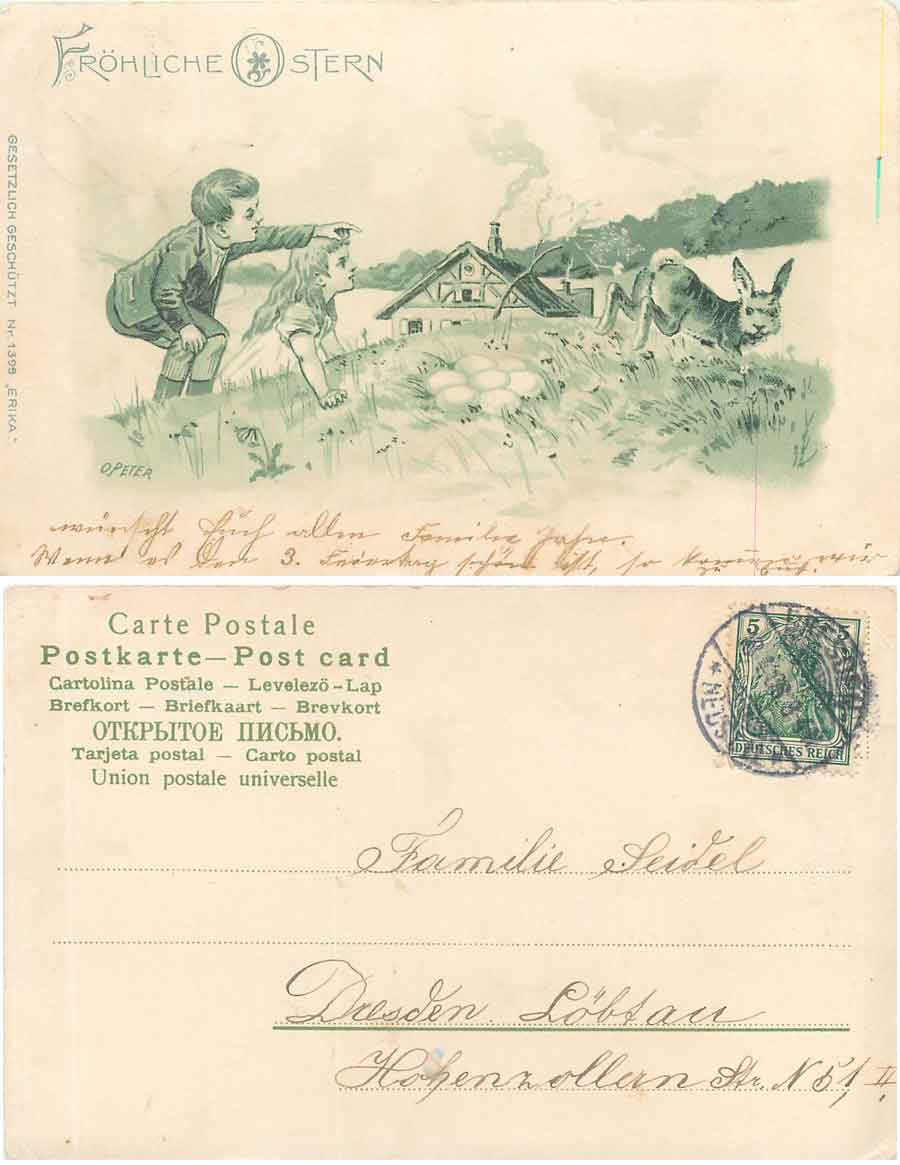 FRÖHLICHE OSTERN
GESETZLICH GESCHÜTZT Nr. 1398 „ERIKA“
O. PETER
wünscht Euch allen Familie Jahn.
Wenn es den 3. Feiertag schön ist, so kommen wir
zu Euch
Carte Postale
Postkarte — Post card
Cartolina Postale — Levelezö-Lap
Brefkort — Briefkaart — Brevkort
ОТКРЫТОЕ ПИСЬМО.
Tarjeta postal — Carto postal
Union postale universelle
5 5
DEUTSCHES REICH
Familie Seidel
Dresden. Löbtau
Hohenzollern Str. N 51 II.